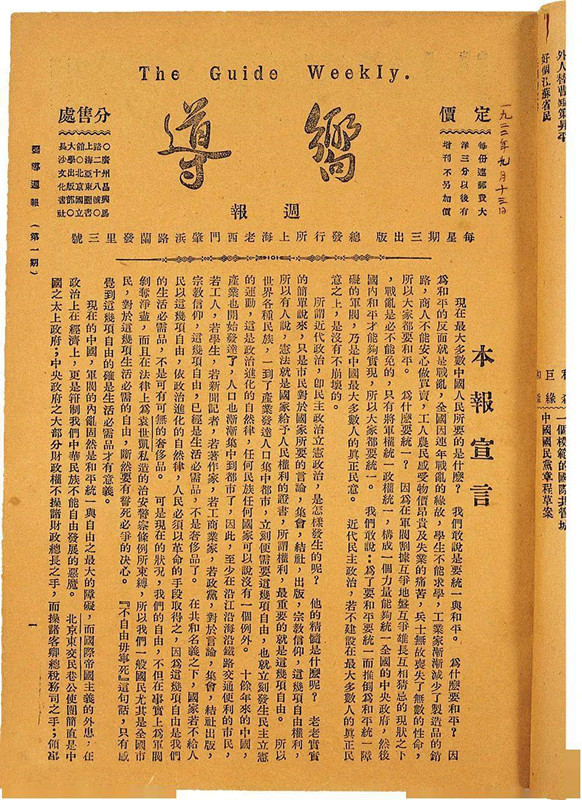 The Guide Weekly.
嚮導
週報
定價
每份連郵費大
洋三分以後有
增刊不另加價
一九二二年九月十三日
分售處
○廣州昌興馬
路二十八號○
上海亞東圖書
館○北京國立
大學出版部○
長沙文化書社
每星期三出版 總發行所上海老西門肇浜路蘭發里三號
本報宣言
現在最大多數中國人民所要的是什麼？ 我們敢說是要統一與和平。 爲什麼要和平？ 因
爲和平的反面就是戰亂，全國因連年戰亂的緣故，學生不能求學，工業家漸漸減少了製造品的銷
路，商人不能安心做買賣，工人農民感受物價昂貴及失業的痛苦，兵士無故喪失了無數的性命，
所以大家都要和平。 爲什麼要統一？ 因爲在軍閥割據互爭地盤互爭雄長互相猜忌的現狀之下
，戰亂是必不能免的，只有將軍權統一政權統一，構成一個力量能夠統一全國的中央政府，然後
國內和平才能夠實現，所以大家都要統一。 我們敢說：爲了要和平要統一而推倒爲和平統一障
礙的軍閥，乃是中國最大多數人的真正民意。 近代民主政治，若不建設在最大多數人的真正民
意之上，是沒有不崩壞的。
所謂近代政治，卽民主政治立憲政治，是怎樣發生的呢？ 他的精髓是什麼呢？ 老老實實
的簡單說來，只是市民對於國家所要的言論，集會，結社，出版，宗教信仰，這幾項自由權利，
所以有人說，憲法就是國家給予人民權利的證書，所謂權利，最重要的就是這幾項自由。 所以
世界各種民族，一到了產業發達人口集中都市，立刻便需要這幾項自由，也就立刻發生民主立憲
的運動，這是政治進化的自然律，任何民族任何國家可以說沒有一個例外。 十餘年來的中國，
產業也開始發達了，人口也漸漸集中到都市了，因此，至少在沿江沿海沿鐵路交通便利的市民，
若工人，若學生，若新聞記者，若著作家，若工商業家，若政黨，對於言論，集會，結社出版，
宗教信仰，這幾項自由，已經是生活必需品，不是奢侈品了。 在共和名義之下，國家若不給人
民以這幾項自由，依政治進化的自然律，人民必須以革命的手段取得之，因爲這幾項自由是我們
的生活必需品，不是可有可無的奢侈品。 可是現在的狀況，我們的自由，不但在事實上爲軍閥
剝奪淨盡，而且在法律上爲袁世凱私造的治安警察條例所束縛，所以我們一般國民尤其是全國市
民，對於這幾項生活必需的自由，斷然要有誓死必爭的決心。 『不自由毋寧死』這句話，只有感
覺到這幾項自由的確是生活必需品才有意義。
現在的中國，軍閥的內亂固然是和平統一與自由之最大的障礙，而國際帝國主義的外患，在
政治上在經濟上，更是箝制我們中華民族不能自由發展的惡魔。 北京東交民巷公使團簡直是中
國之太上政府；中央政府之大部分財政權不操諸財政總長之手，而操諸客卿總稅務司之手；領事
嚮導週報 （第一期）
一
好個江蘇省民
一個模範的國際共管城
中國國民黨章程草案